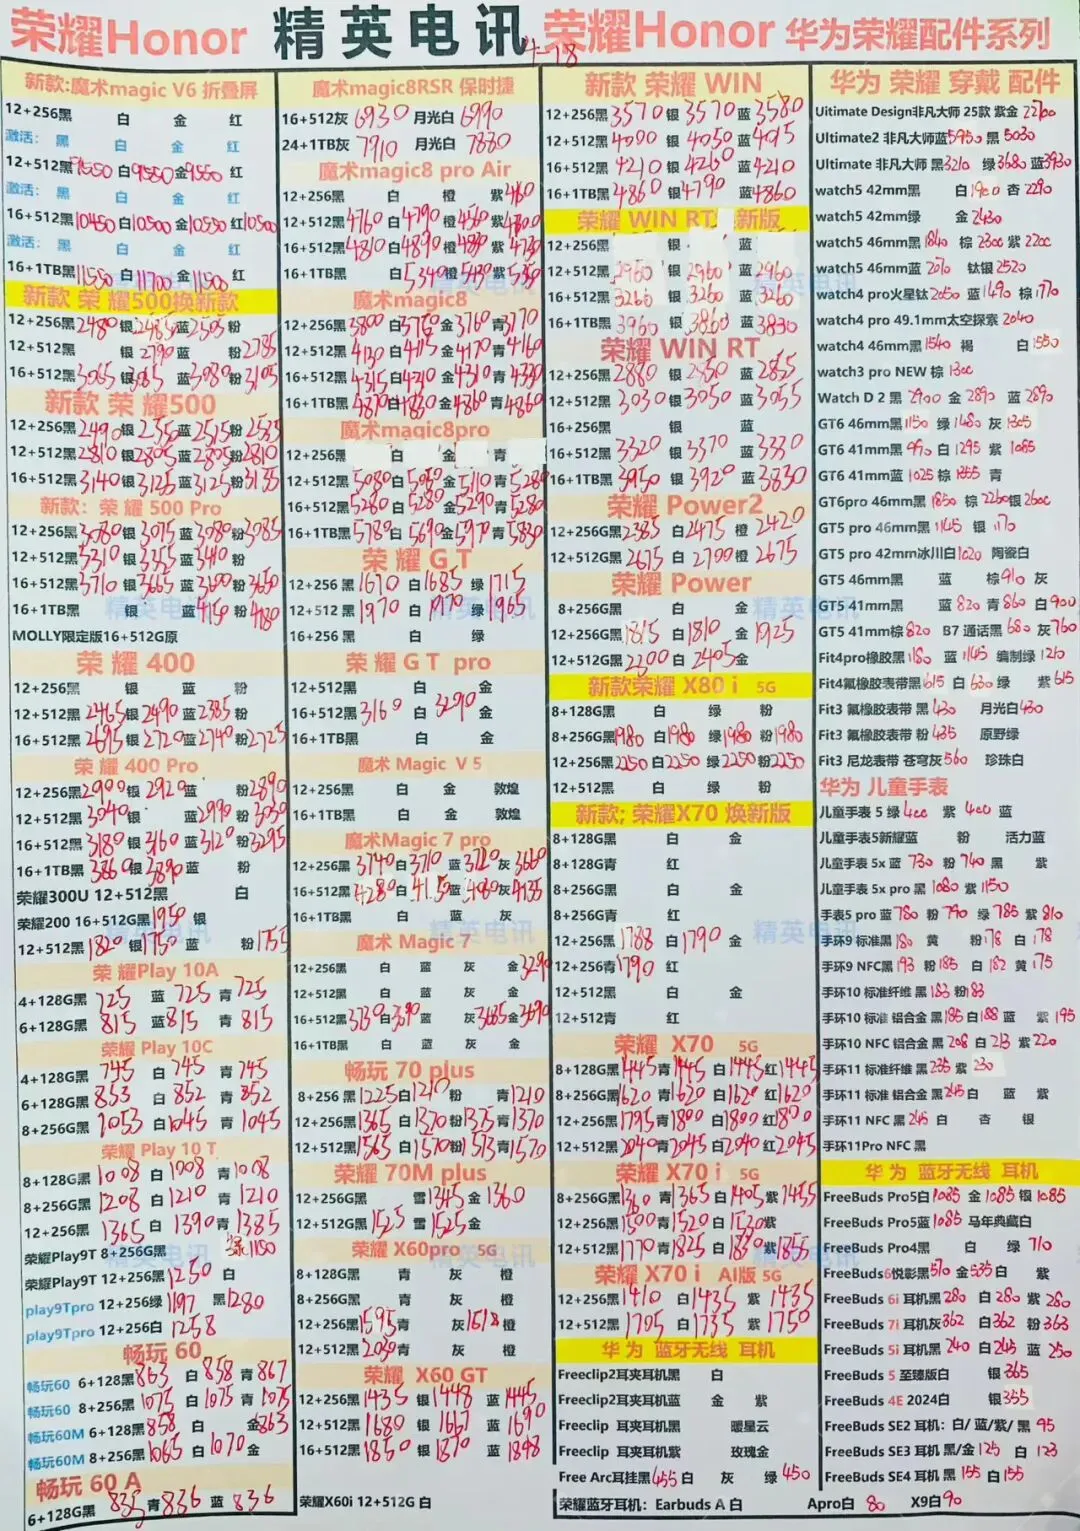 荣耀Honor 精英电讯 荣耀Honor 华为荣耀配件系列
4-18
新款:魔术magic V6 折叠屏
12+256黑 白 金 红
激活: 黑 白 金 红
12+512黑9550 白9550 金9550 红
激活: 黑 白 金 红
16+512黑10450 白10500 金10550 红10500
激活: 黑 白 金 红
16+1TB黑11550 白11700 金11500 红
新款 荣耀500换新款
12+256黑2480 银2485 蓝2505 粉
12+512黑 银2790 蓝 粉2785
16+512黑3065 银3085 蓝3080 粉3105
新款 荣耀500
12+256黑2490 银2550 蓝2515 粉2535
12+512黑2810 银2805 蓝2805 粉2810
16+512黑3140 银3125 蓝3125 粉3135
新款: 荣耀 500 Pro
12+256黑3080 银3075 蓝3080 粉3085
12+512黑3310 银3355 蓝3410 粉
16+512黑3710 银3665 蓝3600 粉3650
16+1TB黑 银 蓝4150 粉4180
MOLLY限定版16+512G原
荣耀 400
12+256黑 银 蓝 粉
12+512黑2465 银2490 蓝2385 粉
16+512黑2695 银2720 蓝2740 粉2725
荣耀 400 Pro
12+256黑2900 银2920 蓝 粉2890
12+512黑3040 银 蓝2990 粉3030
16+512黑3180 银3160 蓝3120 粉3295
16+1TB黑3860 银3890 蓝 粉
荣耀300U 12+512黑 白
荣耀200 16+512G黑1950 银
12+512黑1820 银1750 蓝 粉1755
荣耀Play 10A
4+128G黑 725 蓝 725 青 725
6+128G黑 815 蓝815 青 815
荣耀 Play 10C
4+128G黑 745 白 745 青 745
6+128G黑 853 白 852 青 852
8+256G黑 1053 白1045 青 1045
荣耀 Play 10 T
8+128G黑 1008 白 1008 青 1008
8+256G黑 1208 白 1210 青 1210
12+256黑 1365 白 1390 青 1385
荣耀Play9T 8+256G黑 绿1150
荣耀Play9T 12+256黑1250 白
play9Tpro 12+256绿1197 黑1280
play9Tpro 12+256白 1258
畅玩 60
畅玩60 6+128黑863 白 858 青 867
畅玩60 8+256黑1075 白1075 青 1075
畅玩60M 6+128黑858 白 金863
畅玩60M 8+256黑1065 白1070 金
畅玩 60 A
6+128G黑 835 青836 蓝 836
魔术magic8RSR 保时捷
16+512灰 6930 月光白6990
24+1TB灰 7910 月光白 7830
魔术magic8 pro Air
12+256黑 白 橙 紫4860
12+512黑4760 白4790 橙4560 紫4800
16+512黑4810 白4890 橙4890 紫4730
16+1TB黑 白5340 橙5430 紫5350
魔术magic8
12+256黑3800 白3760 金3760 青3770
12+512黑4130 白4115 金4170 青4160
16+512黑4315 白4240 金4310 青4330
16+1TB黑4870 白4830 金4860 青4860
魔术magic8pro
12+256黑 白 金 青
12+512黑5080 白5050 金5110 青5280
16+512黑5260 白5280 金5290 青5280
16+1TB黑5780 白5690 金5970 青5830
荣耀 G T
12+256 黑1670 白1685 绿1715
12+512 黑1970 白1970 绿1965
16+256 黑 白 绿
荣耀 G T pro
12+512黑 白 金
16+512黑3160 白3290 金
16+1TB黑 白 金
魔术 Magic V 5
12+256黑 白 金 敦煌
16+1TB黑 白 金 敦煌
魔术Magic 7 pro
12+256黑3740 白3710 蓝3720 灰3660
16+512黑4280 白4150 蓝4080 灰4135
16+1TB黑 白 蓝 灰
魔术 Magic 7
12+256黑 白 蓝 灰 金3290
12+512黑 白 蓝 灰 金
16+512黑3730 白3690 蓝 灰3685 金3690
16+1TB黑 白 蓝 灰 金
畅玩 70 plus
8+256 黑1225 白1210 粉 青1210
12+256黑1365 白1370 粉1375 青1370
12+512黑1565 白1570 粉1575 青1570
荣耀 70M plus
12+256G黑 雪1345 金1360
12+512G黑1525 雪1525 金
荣耀 X60pro 5G
8+128G黑 青 灰 橙
8+256G黑 青 灰 橙
12+256黑1595 青 灰1618 橙
12+512黑2039 青 灰 橙
荣耀 X60 GT
12+256黑1435 银1448 蓝1445
12+512黑1680 银1667 蓝1690
16+512黑1850 银1870 蓝1898
荣耀X60i 12+512G 白
新款 荣耀 WIN
12+256黑3570 银3570 蓝3580
12+512黑4090 银4050 蓝4015
16+512黑4210 银4260 蓝4210
16+1TB黑4860 银4790 蓝4860
荣耀 WIN RT 新版
12+256黑 银 蓝
12+512黑2960 银2960 蓝2960
16+512黑3260 银3260 蓝3260
16+1TB黑3960 银3860 蓝3830
荣耀 WIN RT
12+256黑2880 银2850 蓝2855
12+512黑3030 银3050 蓝3055
16+256黑 银 蓝
16+512黑3320 银3370 蓝3330
16+1TB黑3950 银3920 蓝3830
荣耀 Power2
12+256G黑2385 白2475 橙 2420
12+512G黑2675 白2700 橙 2675
荣耀 Power
8+256G黑 白 金
12+256G黑1815 白1810 金1925
12+512G黑2300 白2405 金
新款荣耀 X80 i 5G
8+128G黑 白 绿 粉
8+256G黑1980 白1980 绿1980 粉1980
12+256黑2250 白2250 绿2250 粉2250
12+512黑 白 绿 粉
新款; 荣耀X70 焕新版
8+128G黑 白 金
8+128G青 红
8+256G黑 白 金
8+256G青 红
12+256黑1788 白1790 金
12+256青1790 红
12+512黑 白 金
12+512青 红
荣耀 X70 5G
8+128G黑1445 青1445 白1445 红1445
8+256G黑1620 青1620 白1620 红1620
12+256黑1795 青1800 白1800 红1800
12+512黑2040 青2045 白2040 红2045
荣耀 X70 i 5G
8+256G黑1360 青1365 白1405 紫1455
12+256黑1500 青1520 白1530 紫
12+512黑1770 青1825 白1850 紫1855
荣耀 X70 i AI版 5G
12+256黑1410 白1435 紫1435
12+512黑1705 白1735 紫1750
华为 蓝牙无线 耳机
Freeclip2耳夹耳机黑 白
Freeclip2耳夹耳机蓝 金 紫
Freeclip 耳夹耳机黑 暖星云
Freeclip 耳夹耳机紫 玫瑰金
Free Arc耳挂黑455 白 灰 绿 450
荣耀蓝牙耳机: Earbuds A 白 Apro白 80 X9白90
华为 荣耀 穿戴 配件
Uitimate Design非凡大师 25款 紫金 22700
Ultimate2 非凡大师蓝5950 黑 5030
Ultimate 非凡大师 黑3210 绿3680 蓝3930
watch5 42mm黑 白1900 杏 2290
watch5 42mm绿 金2430
watch5 46mm黑1840 棕 2300 紫 2200
watch5 46mm蓝 2070 钛银2520
watch4 pro火星钛2050 蓝1490 棕1770
watch4 pro 49.1mm太空探索 2040
watch4 46mm黑1540 褐 白1550
watch3 pro NEW 棕 1300
Watch D 2 黑2900 金 2890 蓝 2890
GT6 46mm黑1150 绿1480 灰1305
GT6 41mm黑990 白1295 紫1085
GT6 41mm蓝1025 棕1365 青
GT6pro 46mm黑1850 棕2260 银2600
GT5 pro 46mm黑1145 银1170
GT5 pro 42mm冰川白1020 陶瓷白
GT5 46mm黑 蓝 棕910 灰
GT5 41mm黑 蓝 820 青 860 白900
GT5 41mm棕820 B7 通话黑 680 灰760
Fit4pro橡胶黑1180 蓝1145 编制绿1210
Fit4氟橡胶表带黑615 白 630 绿 紫 615
Fit3 氟橡胶表带 黑430 月光白430
Fit3 氟橡胶表带 粉 435 原野绿
Fit3 尼龙表带 苍穹灰560 珍珠白
华为 儿童手表
儿童手表 5 绿400 紫 400 蓝
儿童手表5新耀蓝 粉 活力蓝
儿童手表 5x 蓝 730 粉 740 黑 紫
儿童手表 5x pro 黑1080 紫1150
手表5 pro 蓝780 粉 790 绿 785 紫 810
手环9 标准黑180 黄 粉178 白178
手环9 NFC黑193 粉185 白182 黄175
手环10 标准纤维 黑183 粉183
手环10 标准 铝合金 黑185 白188 蓝 紫195
手环10 NFC 铝合金 黑208 白213 紫220
手环11 标准纤维 黑235 紫230
手环11 标准 铝合金 黑245 白 蓝 紫
手环11 NFC 黑245 白 杏 银
手环11Pro NFC 黑
华为 蓝牙无线 耳机
FreeBuds Pro5白1085 金1085 银1085
FreeBuds Pro5蓝1085 马年典藏白
FreeBuds Pro4黑 白 绿 710
FreeBuds6悦彰黑510 金535 白 紫
FreeBuds 6i 耳机黑280 白 280 紫 280
FreeBuds 7i 耳机灰362 白362 粉 363
FreeBuds 5i 耳机黑 240 白245 蓝 250
FreeBuds 5 至臻版白 银365
FreeBuds 4E 2024白 银355
FreeBuds SE2 耳机: 白/ 蓝/紫/ 黑 95
FreeBuds SE3 耳机 黑/金125 白 123
FreeBuds SE4 耳机 黑 155 白155